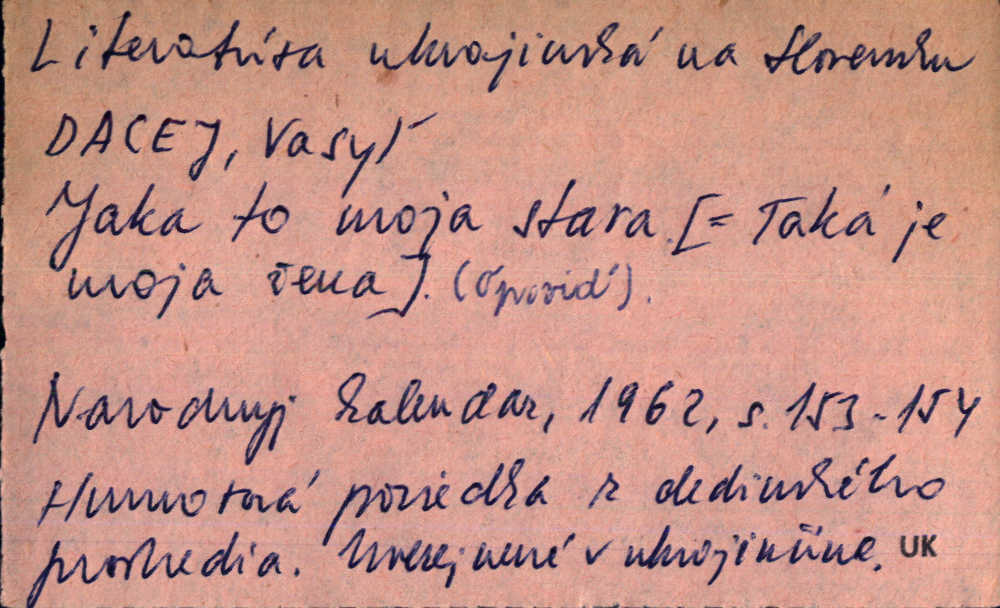 Literatúra ukrajinská na Slovensku
DACEJ, Vasyľ
Jaka to moja stara. [= Taká je
moja žena]. (Opovid').
Narodnyj kalendar, 1962, s. 153-154
Humorná poviedka z dedinského
prostredia. Uverejnené v ukrajinčine. UK